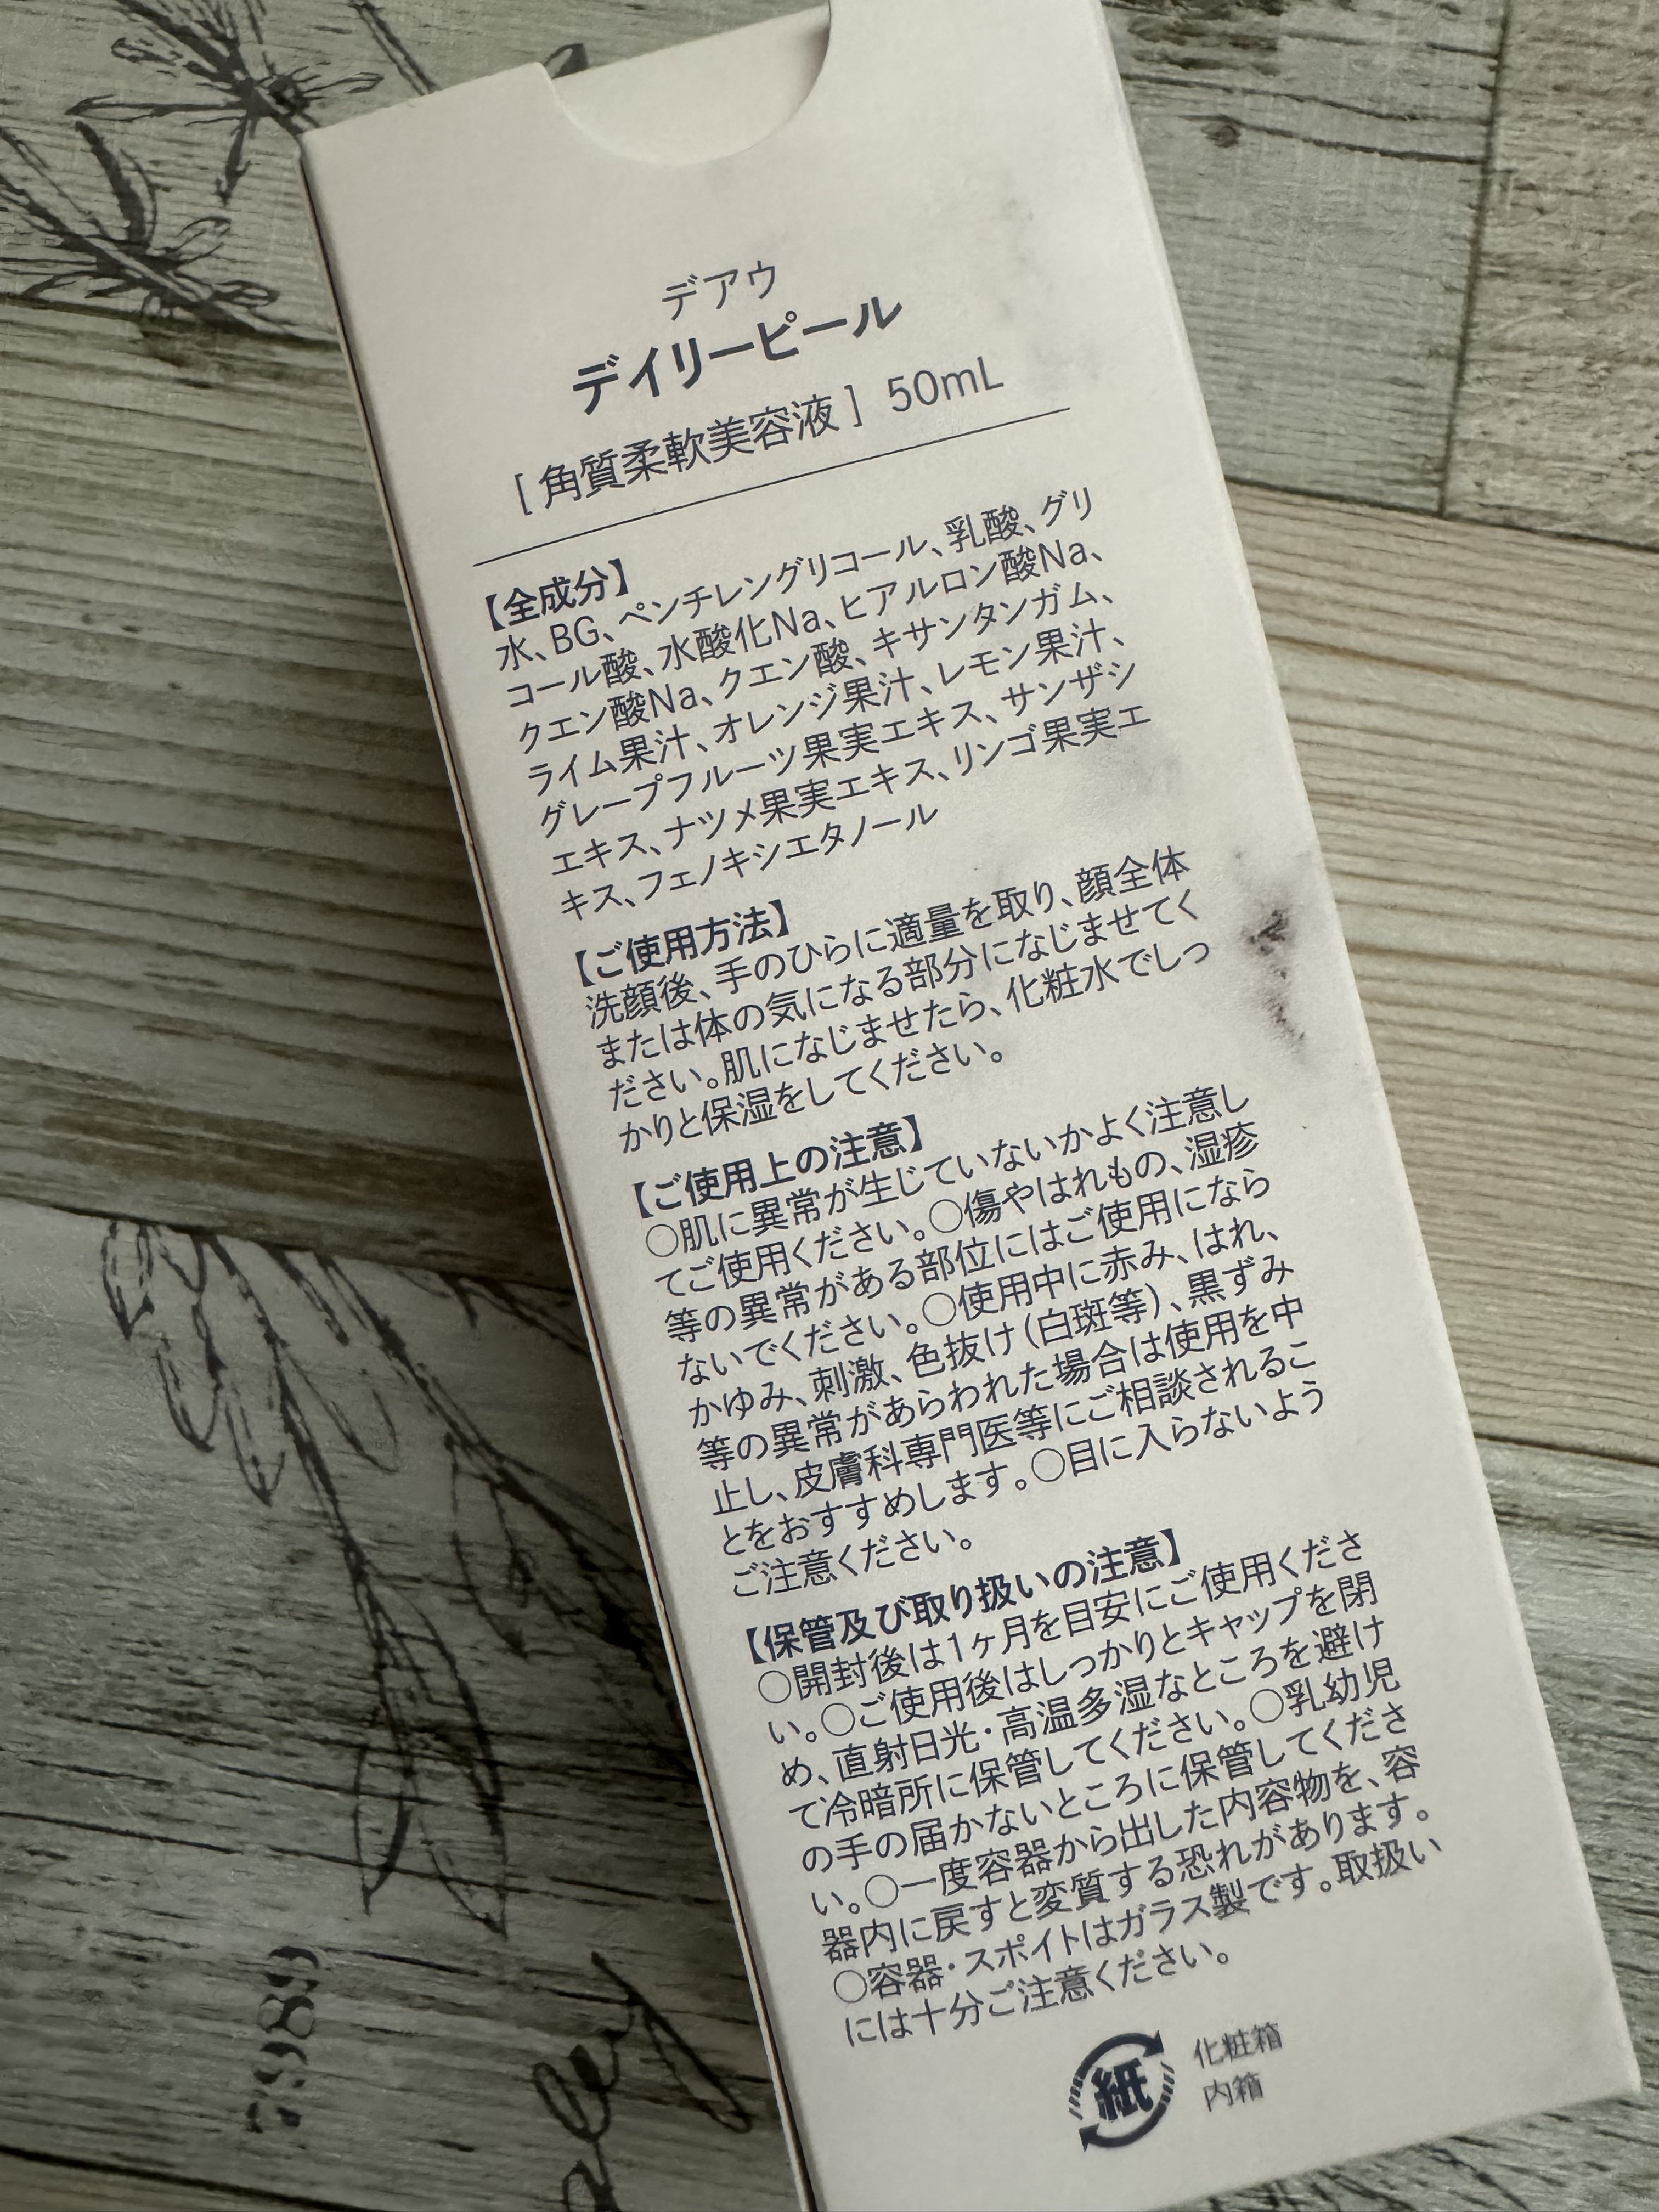 デアウ
デイリーピール
[ 角質柔軟美容液 ] 50mL
【全成分】
水、BG、ペンチレングリコール、乳酸、グリ
コール酸、水酸化Na、ヒアルロン酸Na、
クエン酸Na、クエン酸、キサンタンガム、
ライム果汁、オレンジ果汁、レモン果汁、
グレープフルーツ果実エキス、サンザシ
エキス、ナツメ果実エキス、リンゴ果実エ
キス、フェノキシエタノール
【ご使用方法】
洗顔後、手のひらに適量を取り、顔全体
または体の気になる部分になじませてく
ださい。肌になじませたら、化粧水でしっ
かりと保湿をしてください。
【ご使用上の注意】
○肌に異常が生じていないかよく注意し
てご使用ください。○傷やはれもの、湿疹
等の異常がある部位にはご使用になら
ないでください。○使用中に赤み、はれ、
かゆみ、刺激、色抜け（白斑等）、黒ずみ
等の異常があらわれた場合は使用を中
止し、皮膚科専門医等にご相談されるこ
とをおすすめします。○目に入らないよう
ご注意ください。
【保管及び取り扱いの注意】
○開封後は1ヶ月を目安にご使用くださ
い。○ご使用後はしっかりとキャップを閉
め、直射日光・高温多湿なところを避け
て冷暗所に保管してください。○乳幼児
の手の届かないところに保管してくださ
い。○一度容器から出した内容物を、容
器内に戻すと変質する恐れがあります。
○容器・スポイトはガラス製です。取扱い
には十分ご注意ください。
紙
化粧箱
内箱